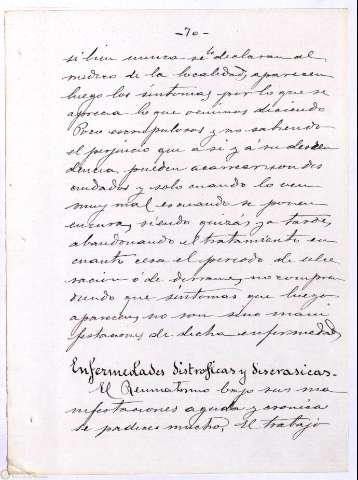 -70-
si bien nunca se lo declaran al
medico de la localidad, aparecen
luego los sintomas, por lo que se
aprecia lo que venimos diciendo
Poco escrupulosos y no sabiendo
el perjuicio que a si y á su descen
dencia pueden acarrear son des
cuidados y solo cuando lo ven
muy mal es cuando se ponen
en cura, siendo quizás ya tarde,
abandonando el tratamiento en
cuanto cesa el periodo de ulce
racion ó de derrame, no compren
diendo que sintomas que luego
aparecen, no son sino mani
festaciones de dicha enfermedad
Enfermedades distroficas y discrasicas.-
El Reumatismo bajo sus ma
nifestaciones aguda y cronica
se padece mucho, El trabajo